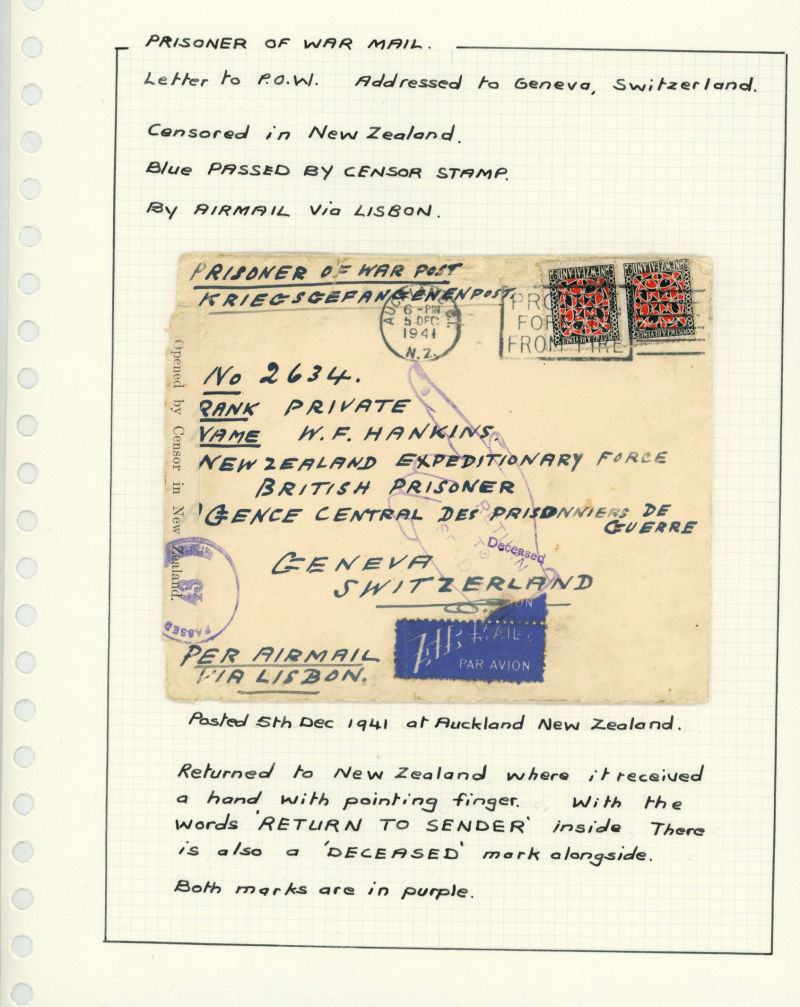 PRISONER OF WAR MAIL.
Letter to P.O.W. Addressed to Geneva, Switzerland.
Censored in New Zealand.
Blue PASSED BY CENSOR STAMP.
By AIRMAIL Via LISBON.
PRISONER OF WAR POST
KRIEGSGEFANGENENPOST.
AUCKLAND
6 - PM
5 DEC
1941
N.Z.
FROM FIRE
NEW ZEALAND
NEW ZEALAND
Opened by Censor in New Zealand.
No 2634.
RANK PRIVATE
NAME W. F. HANKINS.
NEW ZEALAND EXPEDITIONARY FORCE
BRITISH PRISONER
'GENCE CENTRAL DES PRISONNIERS DE
GUERRE
RETURN
TO
SENDER
Deceased
GENEVA
SWITZERLAND
PASSED
AIR MAIL
PAR AVION
PER AIRMAIL
VIA LISBON.
Posted 5th Dec 1941 at Auckland New Zealand.
Returned to New Zealand where it received
a hand with pointing finger. With the
words 'RETURN TO SENDER' inside There
is also a 'DECEASED' mark alongside.
Both marks are in purple.